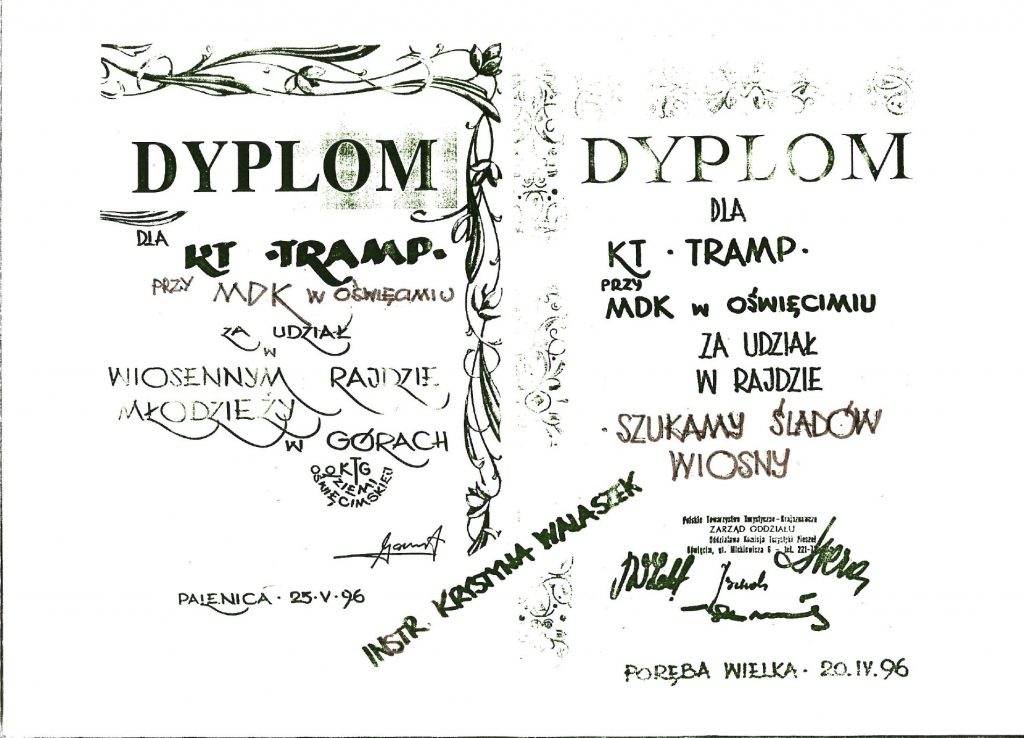 DYPLOM
DLA
KT ·TRAMP·
PRZY MDK W OŚWIĘCIMIU
ZA UDZIAŁ
W
WIOSENNYM RAJDZIE
MŁODZIEŻY
W GÓRACH
OO KTG
ZIEMI
OŚWIĘCIMSKIEJ
PALENICA · 25·V·96
INSTR. KRYSTYNA WALASZEK
DYPLOM
DLA
KT · TRAMP·
PRZY
MDK W OŚWIĘCIMIU
ZA UDZIAŁ
W RAJDZIE
·SZUKAMY ŚLADÓW
WIOSNY
Polskie Towarzystwo Turystyczno-Krajoznawcze
ZARZĄD ODDZIAŁU
Oddziałowa Komisja Turystyki Pieszej
Oświęcim, ul. Mickiewicza 6 - tel. 221-
PORĘBA WIELKA· 20.IV.96